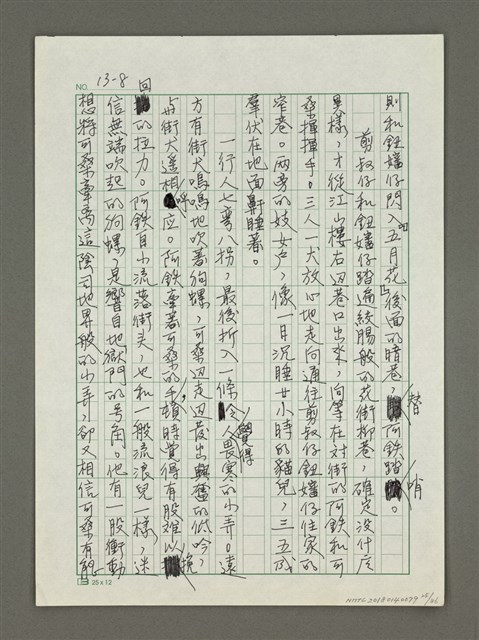 NO. 13-8
則和鈕嬸仔閃入「五月花」後面的暗巷,替阿鉄踏哨。
剪叔仔和鈕嬸仔踏遍絞腸般的花街柳巷,確定沒什広
異樣,才從江山樓右辺巷口出來,向等在对街的阿鉄和可
桑揮揮手。三人一犬放心地走向通往剪叔仔鈕嬸仔住家的
窄巷。兩旁的妓女戶,像一日沉睡廿小時的貓兒,三五成
羣伏在地面鼾睡着。
一行人七彎八拐,最後折入一條令人覺得畏寒的小弄。遠
方有街犬鳴鳴地吹着狗螺,可桑辺走辺發出興奮的低吟,
与街犬遥相呼应。阿鉄牽着可桑的手,頓時覚得有股难以挽
回的扭力。阿鉄自小流落街头,也和一般流浪兒一樣,迷
信無端吹起的狗螺,是響自地獄門的号角。他有一股衝動
想将可桑牽离這陰司地界般的小弄,卻又相信可桑有能
25 x 12
NMTL20180140099 08/26